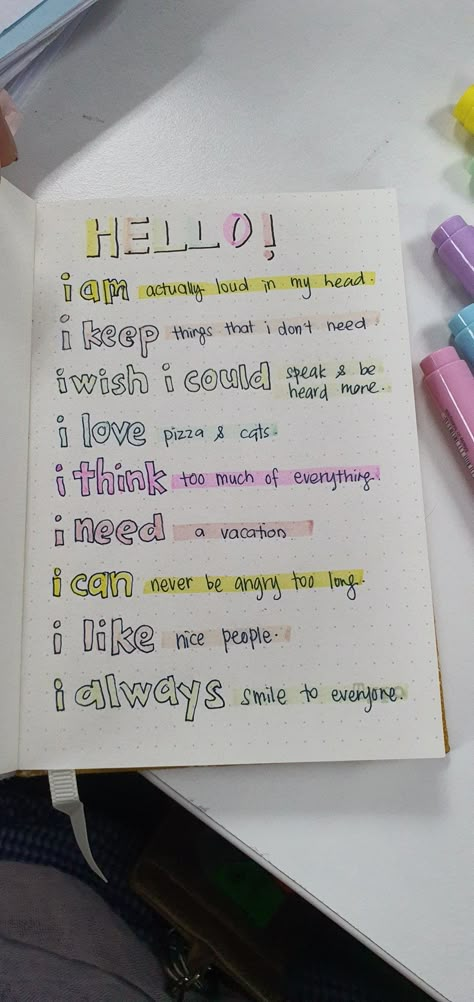 HELLO!
i am actually loud in my head.
i keep things that i don't need.
i wish i could speak & be
heard more.
i love pizza & cats.
i think too much of everything.
i need a vacation
i can never be angry too long.
i like nice people.
i always smile to everyone.